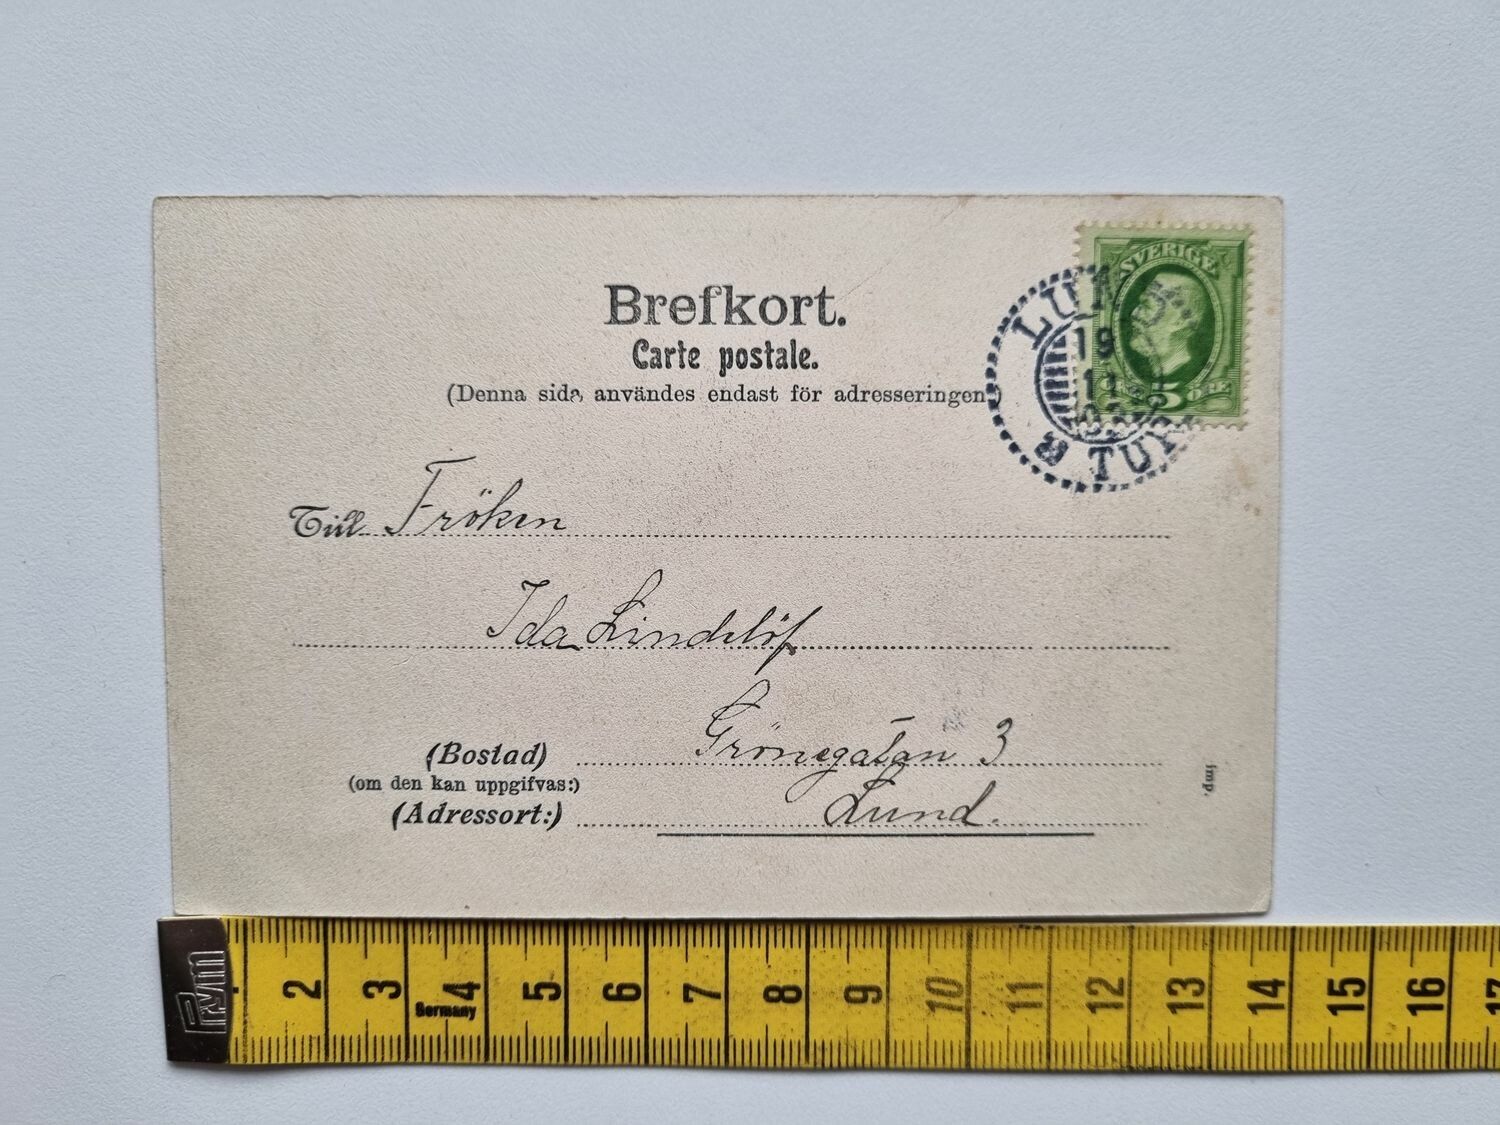 Brefkort.
Carte postale.
(Denna sida användes endast för adresseringen.)
SVERIGE
5 ÖRE
LUND
19
11
TUR
Till Fröken
Ida Lindelöf
(Bostad) Grönegatan 3
(om den kan uppgifvas:)
(Adressort:) Lund.
imp.
Prym
2 3 4 5 6 7 8 9 10 11 12 13 14 15 16 17
Germany